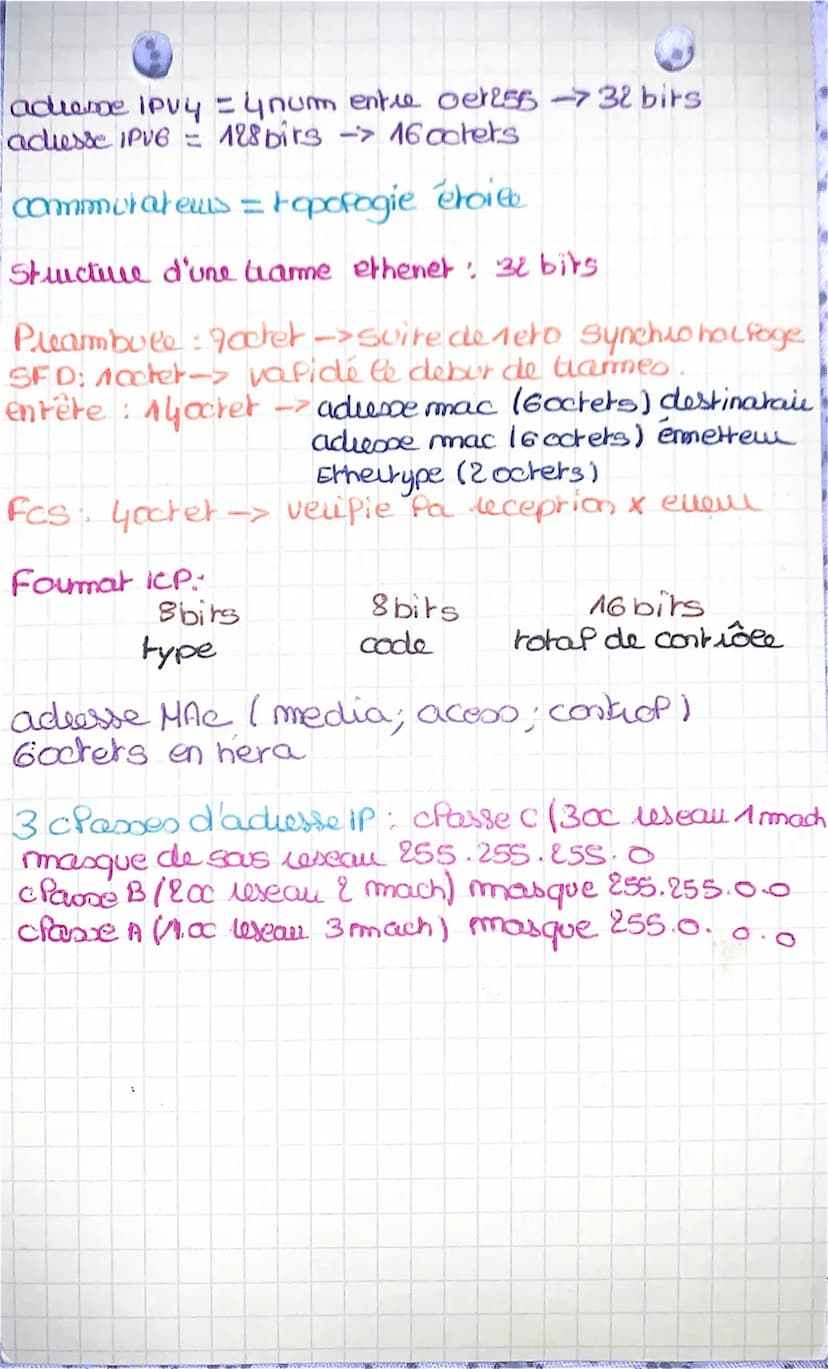 adresse IPV4 = 4 num entre 0 et 255 -> 32 bits
adresse IPV6 = 128 bits -> 16 octets
commutateurs = topologie étoile
Structure d'une trame ethenet : 32 bits
Préambule : 7 octet -> suite de 1 et 0 synchronolage
SFD : 1 octet -> valide le debut de trames.
entête : 14 octet -> adresse mac (6 octets) destinataire
adresse mac (6 octets) émmetteur
Ethertype (2 octets)
Fcs : 4 octet -> verifie la reception x erreur
Format ICP :
8 bits 8 bits 16 bits
type code total de contrôle
adresse MAC (media ; acess ; control)
6 octets en hexa
3 classes d'adresse IP : classe C (3 oc reseau 1 mach
masque de sas reseau 255.255.255.0
classe B (2 oc reseau 2 mach) masque 255.255.0.0
classe A (1.oc reseau 3 mach) masque 255.0.0.0